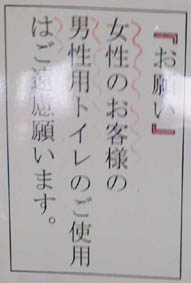 『お願い』
女性のお客様の
男性用トイレのご使用
はご遠慮願います。